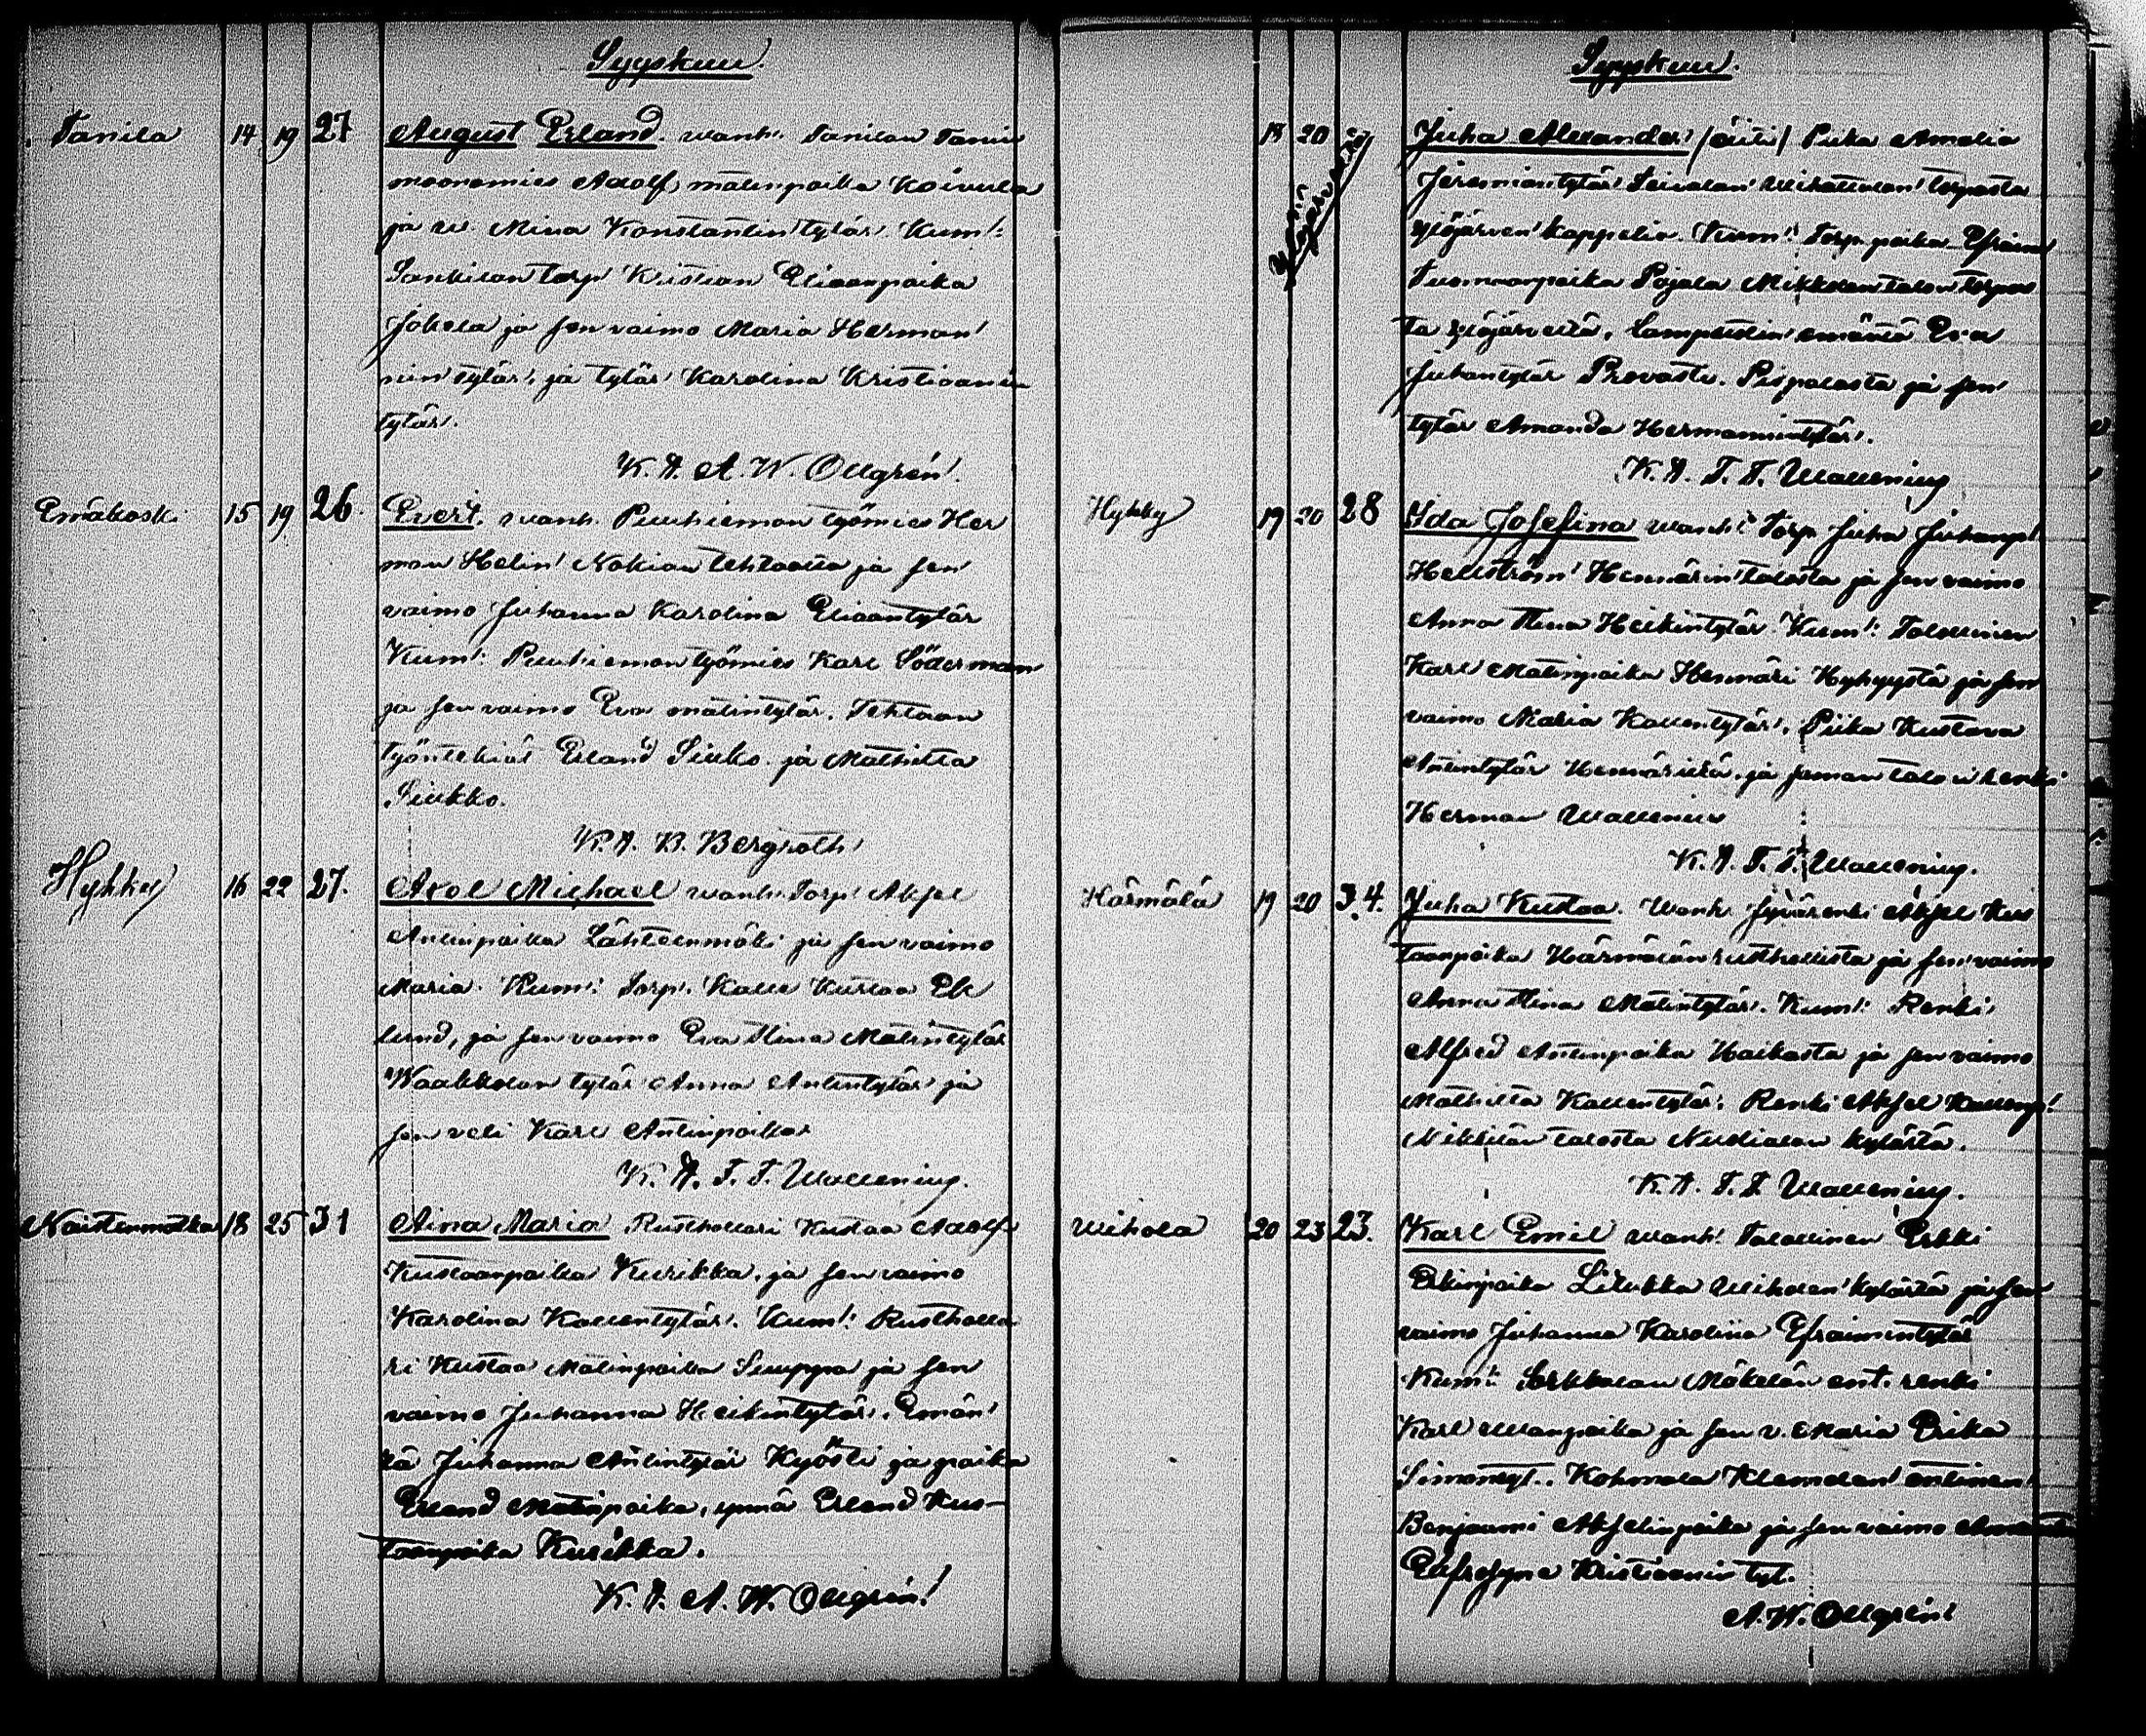 Syyskuu.
Tanila 14 19 27 August Erland. wanh. Tanilan Tanin
moonomies Adolf matinpoika Koivula
ja w. Mina Konstantin tytär. Kum:
torp Kristian Eliaanpoika
Jokela ja sen vaimo Maria Herman
nin tytär, ja tytär Karolina Kristiaanin
tytär.
K. A. A. W. Ollgrén.
Emäkoski 15 19 26. Evert. wanh. Puuhioman työmies Her
man Helin Nokian tehtaalta ja sen
vaimo Juhanna Karolina Eliaantytär
Kum: Puuhioman työmies Karl Söderman
ja sen vaimo Eva matintytär. Tehtaan
työntekiät Erland Siuko ja Mathilta
Siukko.
K. A. B. Bergroth
Hyhky 16 22 27. Axel Michael wanh. Torp. Aksel
Antinpoika Lähteenmäki ja sen vaimo
Maria. Kum: Torp. Kalle Kustaa Ek
lund, ja sen vaimo Eva Mina Matintytär
Waakkolan tytär Anna Antintytär ja
sen veli Karl Antinpoika
K. A. F. F. Wallenius.
Naistenmatka 18 25 31 Aina Maria Rusthollari Kustaa Adolf
Kustaanpoika Kurikka, ja sen vaimo
Karolina Kallentytär. Kum: Rustholla
ri Kustaa Matinpoika Suuppa ja sen
vaimo Juhanna Heikintytär. Emän
tä Juhanna Antintytär Kyösti ja poika
Erland Matinpoika, ynnä Erland Kus-
taanpoika Kurikka.
K. A. A. W. Ollgrén!
Syyskuu.
18 20 Juha Alexander (äiti) Piika Amalia
Jeremiantytär torpasta
Ylöjärven kappelia. Kum: Torp. poika Efraim
Tuomaanpoika Pajala Mikkolan talon torpas
ta Ylöjärveltä, emäntä Eva
Juhantytär Provasti. Pispalasta ja sen
tytär Amanda Hermannintytär.
K. A. F. F. Wallenius
Hyhky 19 20 28 Ida Josefina wanh: Torp. Juha Juhanp.
Hellström Hennärin talosta ja sen vaimo
Anna Mina Heikintytär. Kum: Talollinen
Karl Matinpoika Hennäri Hyhyystä ja sen
vaimo Maria Kallentytär, Piika Kustava
Antintytär Hennäriltä, ja saman talon renki
Herman Wallenius
K. A. F. F. Wallenius.
Härmälä 19 20 34. Juha Kustaa. Wanh. Jyvärenki Aksel Kus
taanpoika Härmälän rusthollista ja sen vaimo
Anna Mina Matintytär. Kum: Renki
Alfred Antinpoika Haikasta ja sen vaimo
Mathilta Kallentytär. Renki Aksel Kallenp.
Nikkilän talosta Nudialan kylästä.
K. A. F. F. Wallenius.
Wihola 20 23 23. Karl Emil wanh. Talollinen Erkki
Erkinpoika Litukka Wiholan kylästä ja sen
vaimo Juhanna Karoliina Efraimintytär
Kum: Sorkkalan Mäkelän ent. renki
Karl ja sen v. Maria Erika
Simontyt. Kohmala Klemolan entinen
Benjaami Akselinpoika ja sen vaimo Amanda
Eufrosyne Kristiaanin tyt.
A. W. Ollgrén